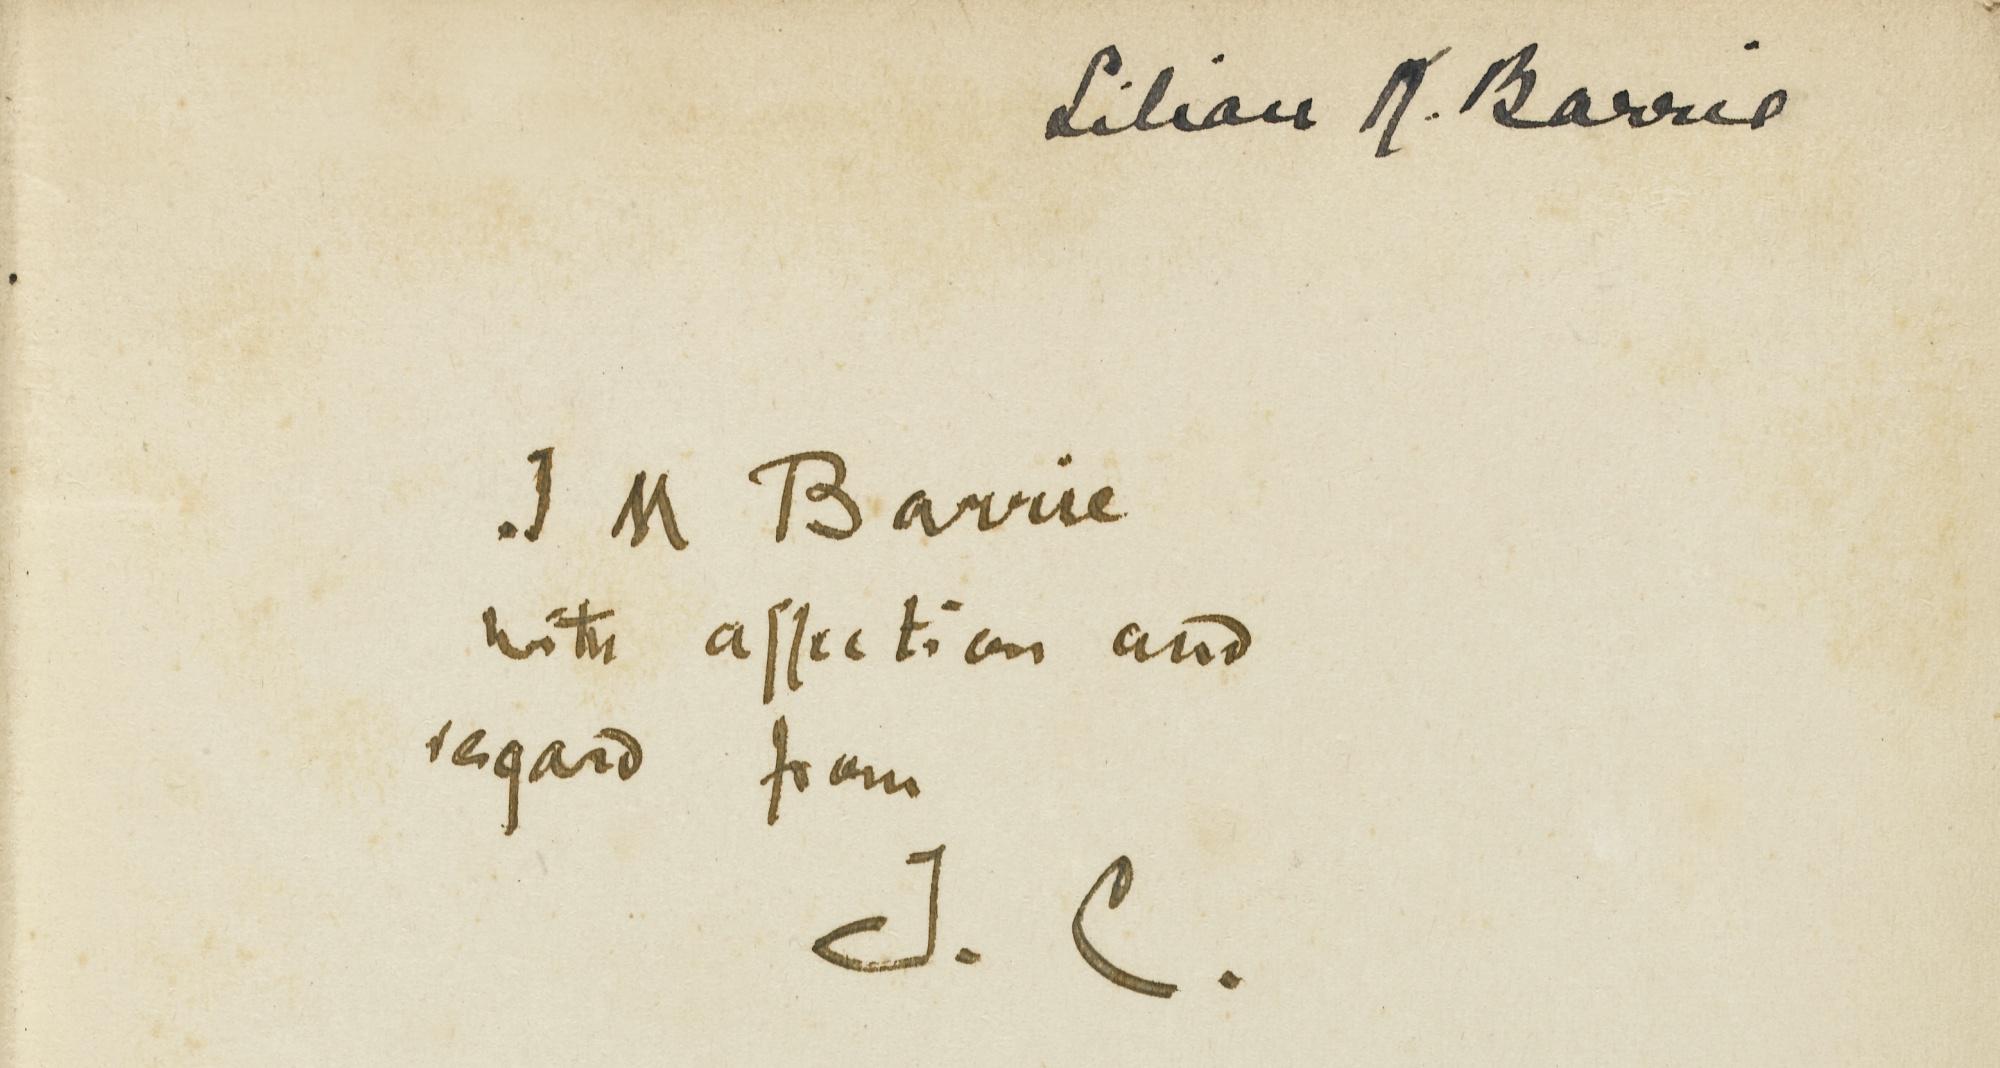 Lilian K. Barrie
J M Barrie
with affection and
regard from
J. C.